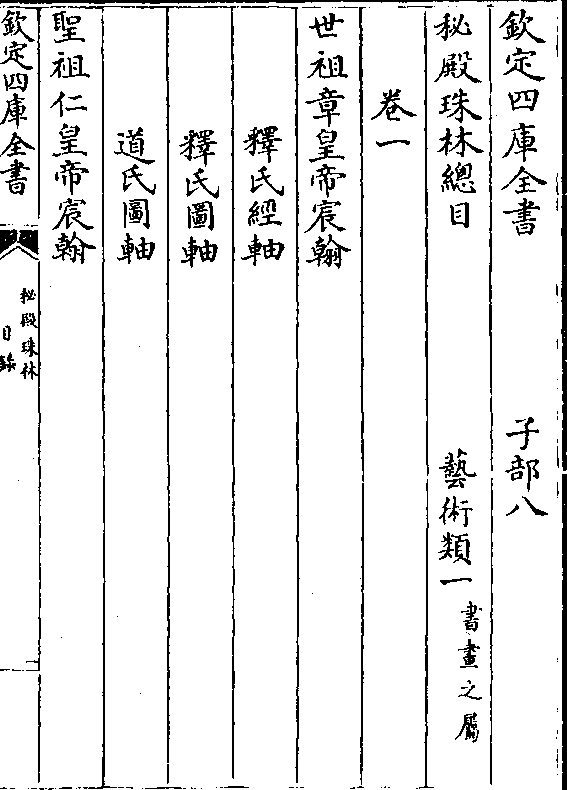 欽定四庫全書　子部八
秘殿珠林總目　藝術類一書畫之屬
卷一
世祖章皇帝宸翰
釋氏經軸
釋氏圖軸
道氏圖軸
聖祖仁皇帝宸翰
欽定四庫全書
秘殿珠林
目錄
一